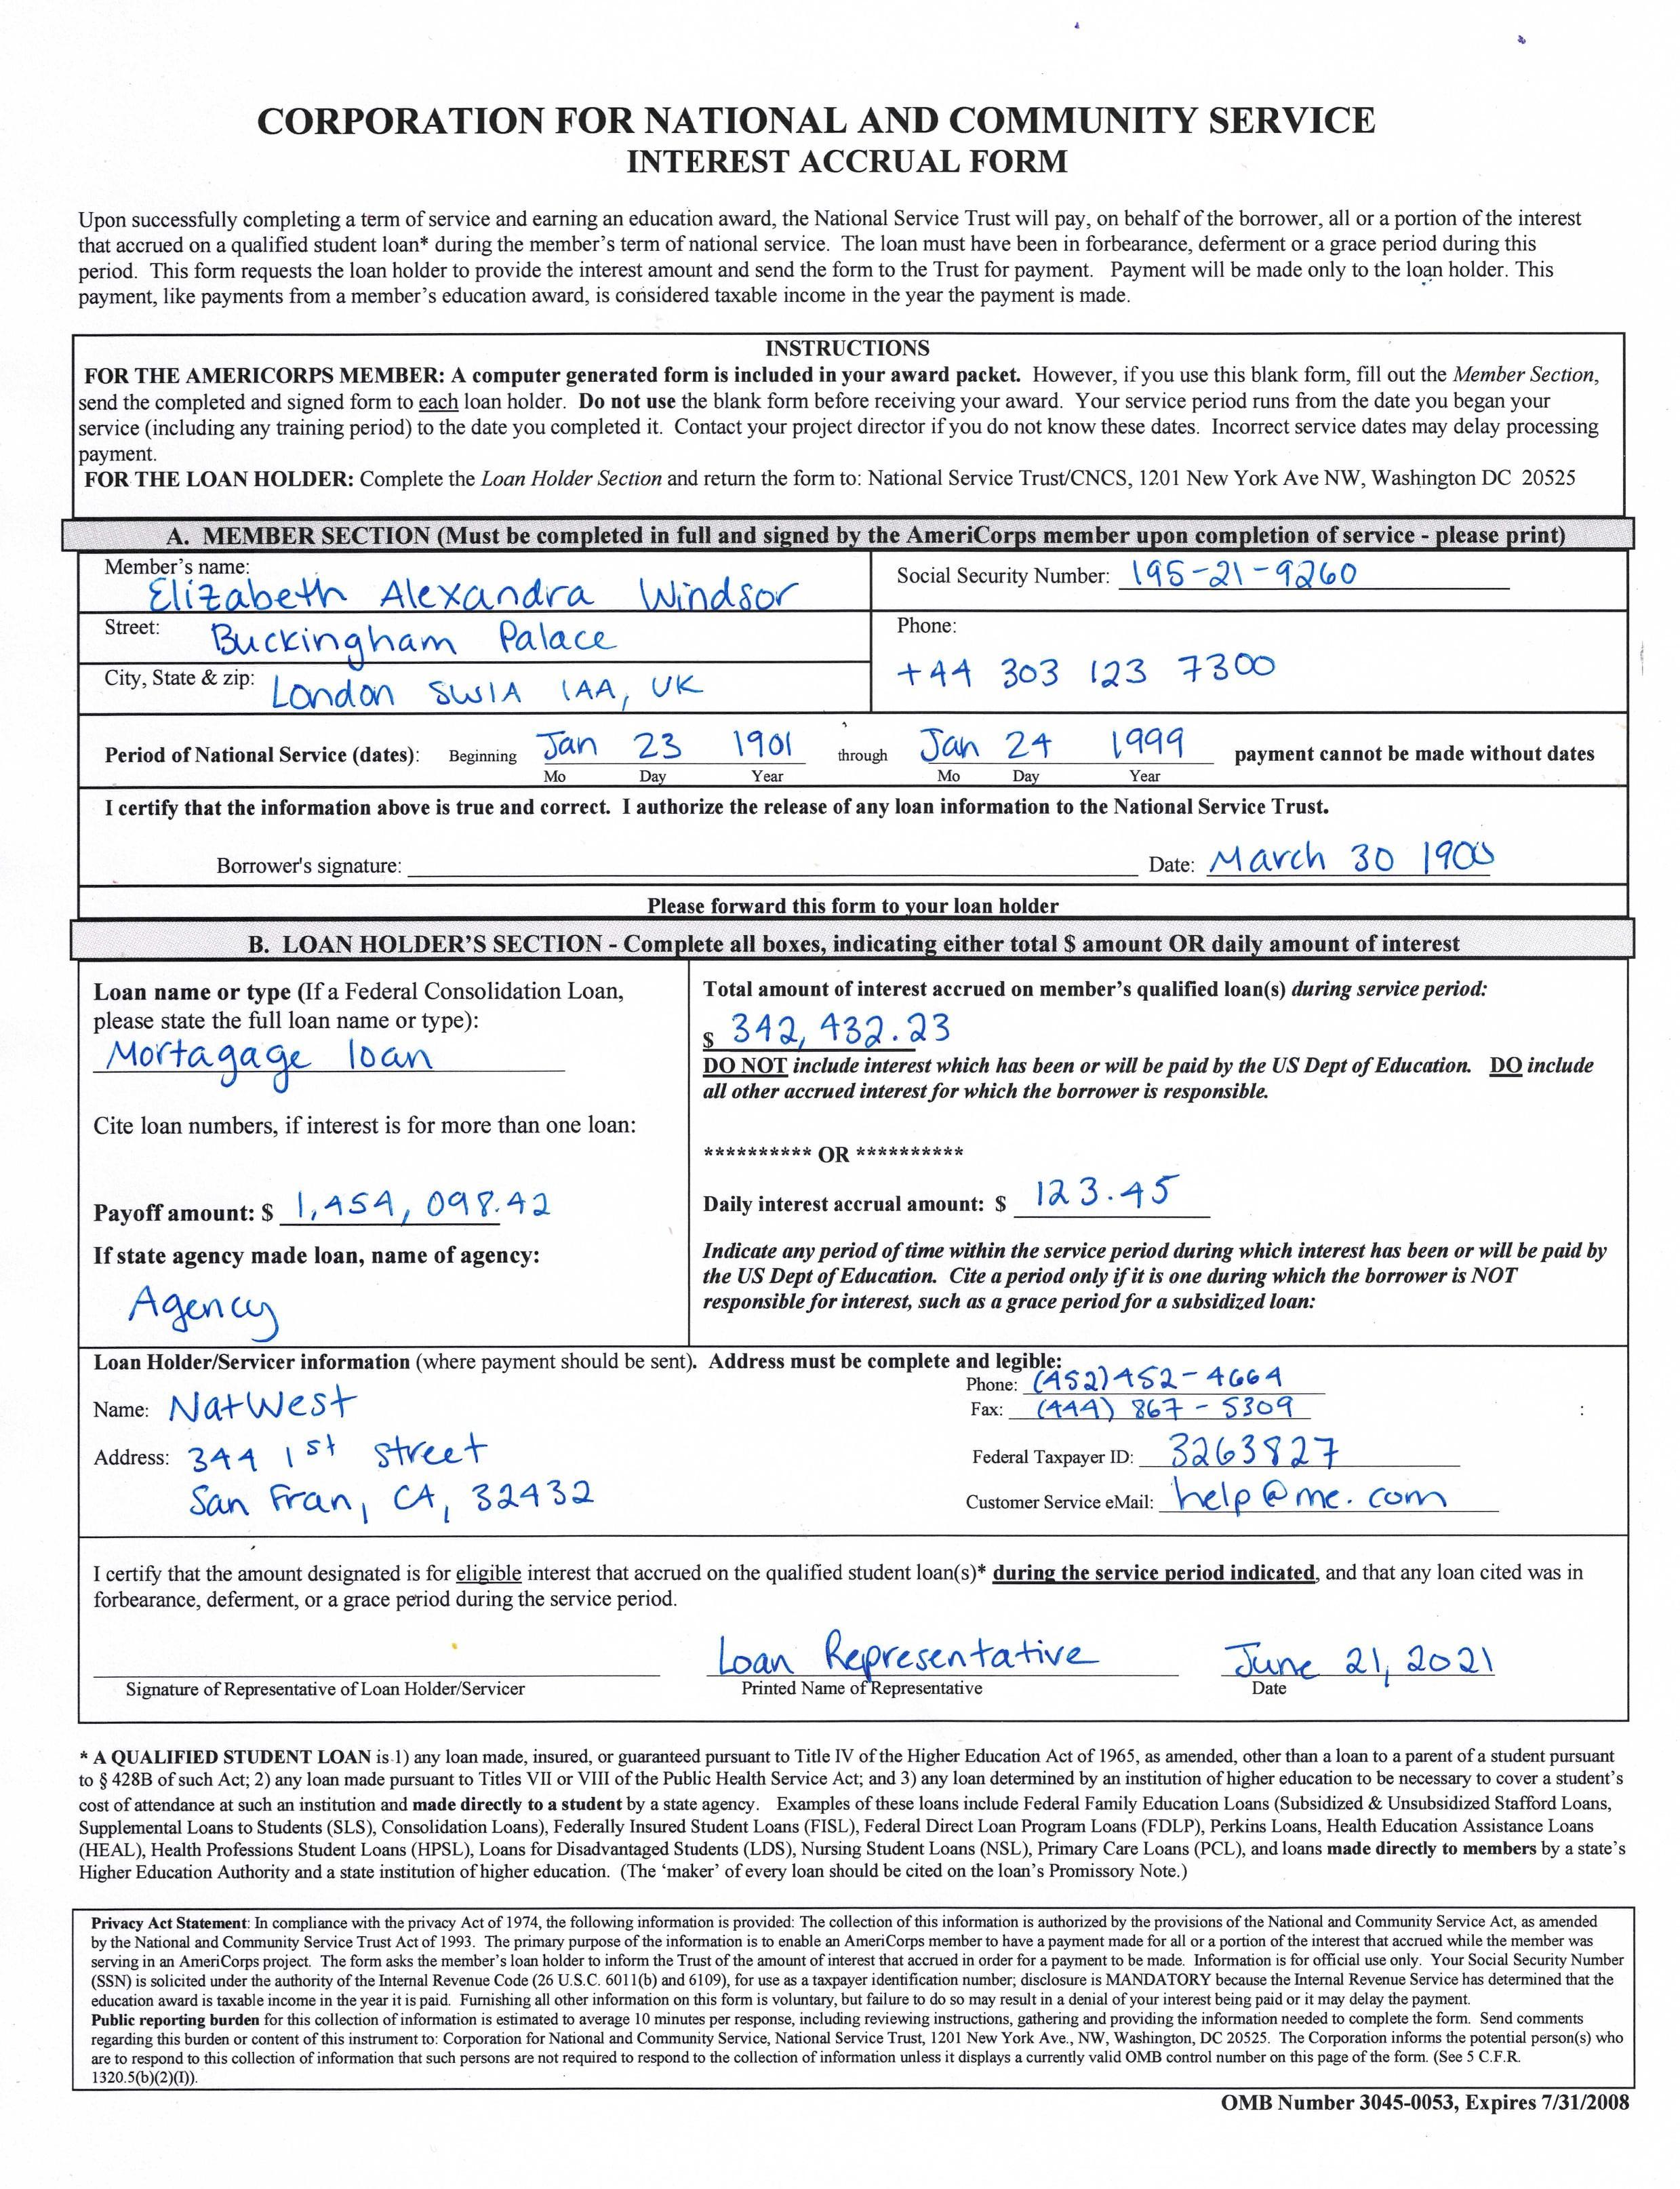 CORPORATION FOR NATIONAL AND COMMUNITY SERVICE
INTEREST ACCRUAL FORM
Upon successfully completing a term of service and earning an education award, the National Service Trust will pay, on behalf of the borrower, all or a portion of the interest
that accrued on a qualified student loan* during the member's term of national service. The loan must have been in forbearance, deferment or a grace period during this
period. This form requests the loan holder to provide the interest amount and send the form to the Trust for payment. Payment will be made only to the loan holder. This
payment, like payments from a member's education award, is considered taxable income in the year the payment is made.
INSTRUCTIONS
FOR THE AMERICORPS MEMBER: A computer generated form is included in your award packet. However, if you use this blank form, fill out the Member Section,
send the completed and signed form to each loan holder. Do not use the blank form before receiving your award. Your service period runs from the date you began your
service (including any training period) to the date you completed it. Contact your project director if you do not know these dates. Incorrect service dates may delay processing
payment.
FOR THE LOAN HOLDER: Complete the Loan Holder Section and return the form to: National Service Trust/CNCS, 1201 New York Ave NW, Washington DC 20525
A. MEMBER SECTION (Must be completed in full and signed by the AmeriCorps member upon completion of service - please print)
Member's name: Elizabeth Alexandra Windsor
Social Security Number: 195-21-9260
Street: Buckingham Palace
Phone:
+44 303 123 7300
City, State & zip: London SW1A 1AA, UK
Period of National Service (dates): Beginning Jan 23 1901 through Jan 24 1999 payment cannot be made without dates
Mo Day Year Mo Day Year
I certify that the information above is true and correct. I authorize the release of any loan information to the National Service Trust.
Borrower's signature: Date: March 30 1900
Please forward this form to your loan holder
B. LOAN HOLDER'S SECTION - Complete all boxes, indicating either total $ amount OR daily amount of interest
Loan name or type (If a Federal Consolidation Loan,
please state the full loan name or type):
Mortagage loan
Cite loan numbers, if interest is for more than one loan:
Payoff amount: $ 1,454,098.42
If state agency made loan, name of agency:
Agency
Total amount of interest accrued on member's qualified loan(s) during service period:
$ 342,432.23
DO NOT include interest which has been or will be paid by the US Dept of Education. DO include
all other accrued interest for which the borrower is responsible.
********** OR **********
Daily interest accrual amount: $ 123.45
Indicate any period of time within the service period during which interest has been or will be paid by
the US Dept of Education. Cite a period only if it is one during which the borrower is NOT
responsible for interest, such as a grace period for a subsidized loan:
Loan Holder/Servicer information (where payment should be sent). Address must be complete and legible:
Phone: (452)452-4664
Name: NatWest
Fax: (444) 867-5309
:
Address: 344 1st street
San Fran, CA, 32432
Federal Taxpayer ID: 3263827
Customer Service eMail: help@me.com
I certify that the amount designated is for eligible interest that accrued on the qualified student loan(s)* during the service period indicated, and that any loan cited was in
forbearance, deferment, or a grace period during the service period.
Loan Representative June 21, 2021
Signature of Representative of Loan Holder/Servicer Printed Name of Representative Date
* A QUALIFIED STUDENT LOAN is 1) any loan made, insured, or guaranteed pursuant to Title IV of the Higher Education Act of 1965, as amended, other than a loan to a parent of a student pursuant
to § 428B of such Act; 2) any loan made pursuant to Titles VII or VIII of the Public Health Service Act; and 3) any loan determined by an institution of higher education to be necessary to cover a student's
cost of attendance at such an institution and made directly to a student by a state agency. Examples of these loans include Federal Family Education Loans (Subsidized & Unsubsidized Stafford Loans,
Supplemental Loans to Students (SLS), Consolidation Loans), Federally Insured Student Loans (FISL), Federal Direct Loan Program Loans (FDLP), Perkins Loans, Health Education Assistance Loans
(HEAL), Health Professions Student Loans (HPSL), Loans for Disadvantaged Students (LDS), Nursing Student Loans (NSL), Primary Care Loans (PCL), and loans made directly to members by a state's
Higher Education Authority and a state institution of higher education. (The 'maker' of every loan should be cited on the loan's Promissory Note.)
Privacy Act Statement: In compliance with the privacy Act of 1974, the following information is provided: The collection of this information is authorized by the provisions of the National and Community Service Act, as amended
by the National and Community Service Trust Act of 1993. The primary purpose of the information is to enable an AmeriCorps member to have a payment made for all or a portion of the interest that accrued while the member was
serving in an AmeriCorps project. The form asks the member's loan holder to inform the Trust of the amount of interest that accrued in order for a payment to be made. Information is for official use only. Your Social Security Number
(SSN) is solicited under the authority of the Internal Revenue Code (26 U.S.C. 6011(b) and 6109), for use as a taxpayer identification number; disclosure is MANDATORY because the Internal Revenue Service has determined that the
education award is taxable income in the year it is paid. Furnishing all other information on this form is voluntary, but failure to do so may result in a denial of your interest being paid or it may delay the payment.
Public reporting burden for this collection of information is estimated to average 10 minutes per response, including reviewing instructions, gathering and providing the information needed to complete the form. Send comments
regarding this burden or content of this instrument to: Corporation for National and Community Service, National Service Trust, 1201 New York Ave., NW, Washington, DC 20525. The Corporation informs the potential person(s) who
are to respond to this collection of information that such persons are not required to respond to the collection of information unless it displays a currently valid OMB control number on this page of the form. (See 5 C.F.R.
1320.5(b)(2)(I)).
OMB Number 3045-0053, Expires 7/31/2008